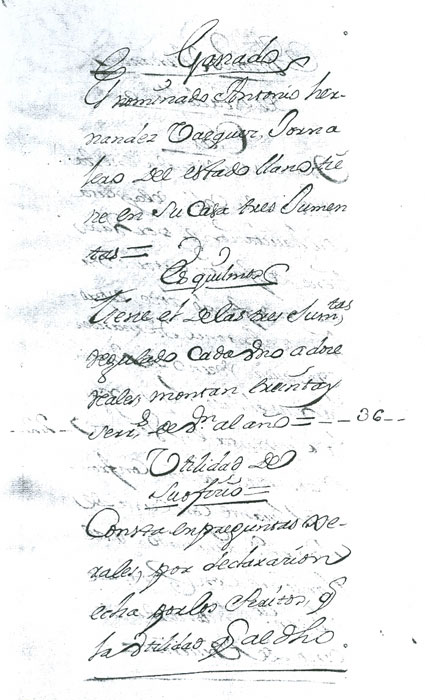 Ganado
El nominado Antonio her-
nandez Vaequer, Jorna
lero del estado llano, tie
ne en su Casa tres Jumen
tas =
Esquilmos
tiene el de las tres Jumtas
regulado cada uno a doze
reales, montan treinta y
seis rs de vn al año = - - 36 - -
Utilidad de
Su ofizio =
Consta en preguntas xe-
rales, por declarazion
echa por los Peritos, q
la Utilidad q